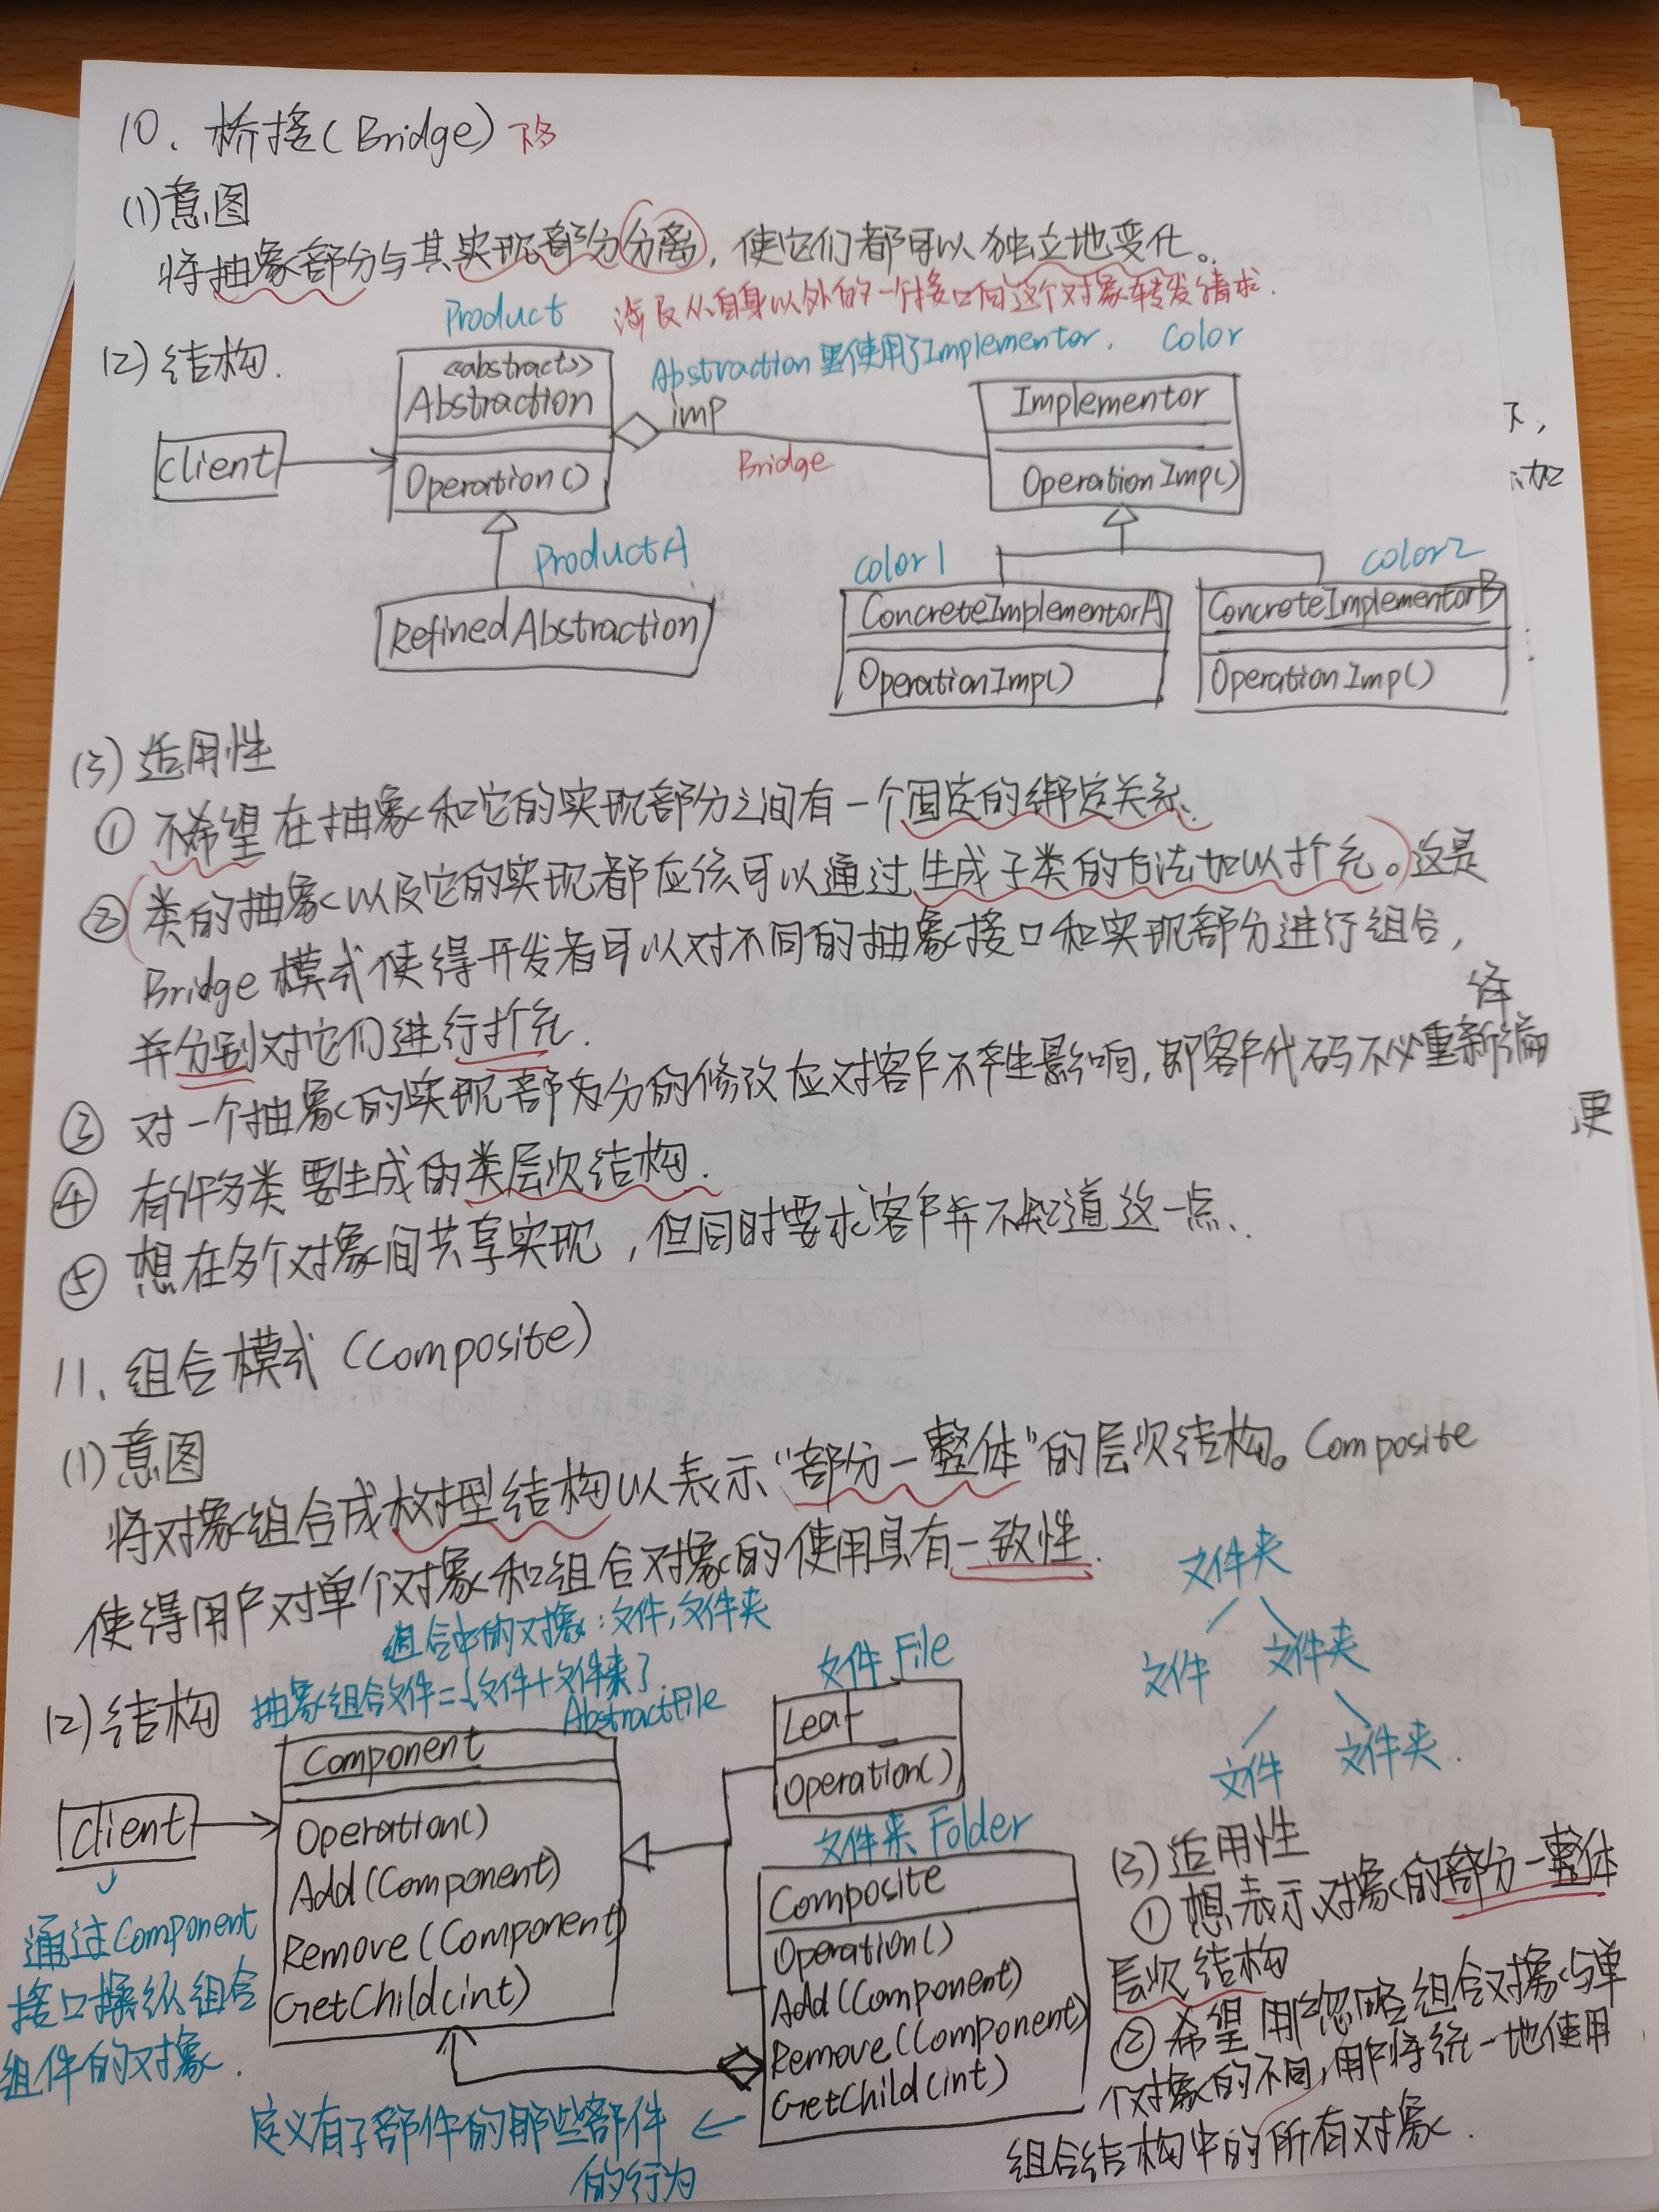 10. 桥接(Bridge)
(1)意图
将抽象部分与其实现部分分离，使它们都可以独立地变化。
涉及从自身以外的一个接口向这个对象转发请求.
(2)结构.
Product
Abstraction里使用了Implementor.
Color
<<abstract>>
Abstraction
Operation()
client
imp
Bridge
Implementor
OperationImp()
ProductA
RefinedAbstraction
color1
ConcreteImplementorA
OperationImp()
color2
ConcreteImplementorB
OperationImp()
(3)适用性
① 不希望在抽象和它的实现部分之间有一个固定的绑定关系.
② (类的抽象以及它的实现都应该可以通过生成子类的方法加以扩充。)这是
Bridge模式使得开发者可以对不同的抽象接口和实现部分进行组合，
并分别对它们进行扩充.
③ 对一个抽象的实现部分的修改应对客户不产生影响，即客户代码不必重新编
译
④ 有许多类要生成的类层次结构.
⑤ 想在多个对象间共享实现，但同时要求客户并不知道这一点.
11. 组合模式 (Composite)
(1)意图
将对象组合成树型结构以表示“部分—整体”的层次结构。Composite
使得用户对单个对象和组合对象的使用具有一致性.
组合中的对象：文件，文件夹
(2)结构
抽象组合文件={文件+文件夹}.
AbstractFile
Component
Operation()
Add(Component)
Remove(Component)
GetChild(int)
client
通过Component
接口操纵组合
组件的对象.
文件 File
Leaf
Operation()
文件夹 Folder
Composite
Operation()
Add(Component)
Remove(Component)
GetChild(int)
定义有子部件的那些部件
的行为
文件夹
文件 文件夹
文件 文件夹.
(3)适用性
① 想表示对象的部分—整体
层次结构
② 希望用户忽略组合对象与单
个对象的不同，用户将统一地使用
组合结构中的所有对象.
更